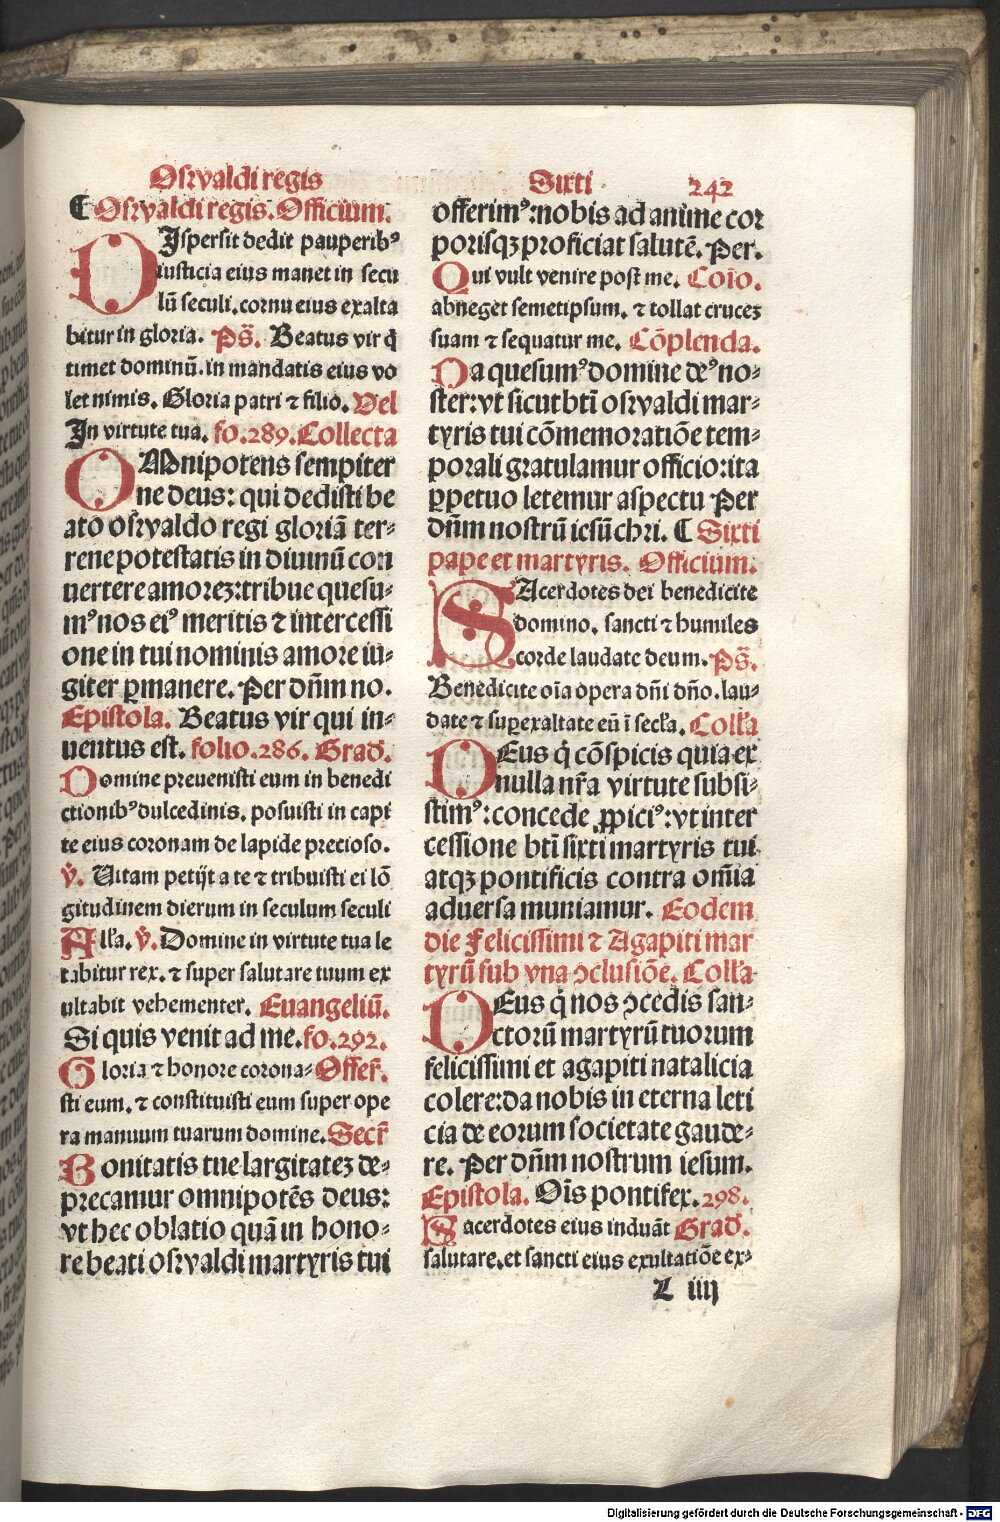 Osrvaldi regis
Sixti
242
¶ Osrvaldi regis. Officium.
DIspersit dedit pauperibꝰ
iusticia eius manet in secu
lū seculi. cornu eius exalta
bitur in gloria. Ps̄. Beatus vir q̇
timet dominū. in mandatis eius vo
let nimis. Gloria patri ⁊ filio. Vel
In virtute tua. fo. 289. Collecta
OMnipotens sempiter
ne deus: qui dedisti be
ato osrvaldo regi gloriā ter⸗
rene potestatis in diuinū con
uertere amoreꝫ: tribue quesu⸗
mꝰ nos eiꝰ meritis ⁊ intercessi
one in tui nominis amore iu⸗
giter ꝑmanere. Per dn̄m no.
Epistola. Beatus vir qui in⸗
uentus est. folio. 286. Grad̄.
Domine preuenisti eum in benedi
ctionibꝰ dulcedinis. posuisti in capi
te eius coronam de lapide precioso.
v̄. Uitam petijt a te ⁊ tribuisti ei lō
gitudinem dierum in seculum seculi
All'a. v̄. Domine in virtute tua le
tabitur rex. ⁊ super salutare tuum ex
ultabit vehementer. Euangeliū.
Si quis venit ad me. fo. 292.
Gloria ⁊ honore corona⸗ Offer̄.
sti eum. ⁊ constituisti eum super ope
ra manuum tuarum domine. Secr̄
Bonitatis tue largitateꝫ de⸗
precamur omnipotēs deus:
vt hec oblatio quā in hono⸗
re beati osrvaldi martyris tui
offerimꝰ: nobis ad anime cor
porisqꝫ proficiat salutē. Per.
Qui vult venire post me. Coīo.
abneget semetipsum. ⁊ tollat cruceꝫ
suam ⁊ sequatur me. Cōplenda.
Da quesumꝰ domine deꝰ no⸗
ster: vt sicut bt̄i osrvaldi mar⸗
tyris tui cōmemoratiōe tem⸗
porali gratulamur officio: ita
ꝑpetuo letemur aspectu Per
dn̄m nostrū iesū chri. ¶ Sixti
pape et martyris. Officium.
SAcerdotes dei benedicite
domino. sancti ⁊ humiles
corde laudate deum. Ps̄.
Benedicite oīa opera dn̄i dn̄o. lau⸗
date ⁊ suꝑexaltate eū ī secl'a. Coll'a
DEus q̇ cōspicis quia ex
nulla nr̄a virtute subsi⸗
stimꝰ: concede ꝓpiciꝰ: vt inter
cessione bt̄i sixti martyris tui
atqꝫ pontificis contra om̄ia
aduersa muniamur. Eodem
die Felicissimi ⁊ Agapiti mar
tyrū sub vna ꝯclusiōe. Coll'a
DEus q̇ nos ꝯcedis san⸗
ctorū martyrū tuorum
felicissimi et agapiti natalicia
colere: da nobis in eterna leti
cia de eorum societate gaude⸗
re. Per dn̄m nostrum iesum.
Epistola. Oīs pontifex. 298.
Sacerdotes eius induāt Grad̄.
salutare. et sancti eius exultatiōe ex⸗
L iiij
Digitalisierung gefördert durch die Deutsche Forschungsgemeinschaft - DFG